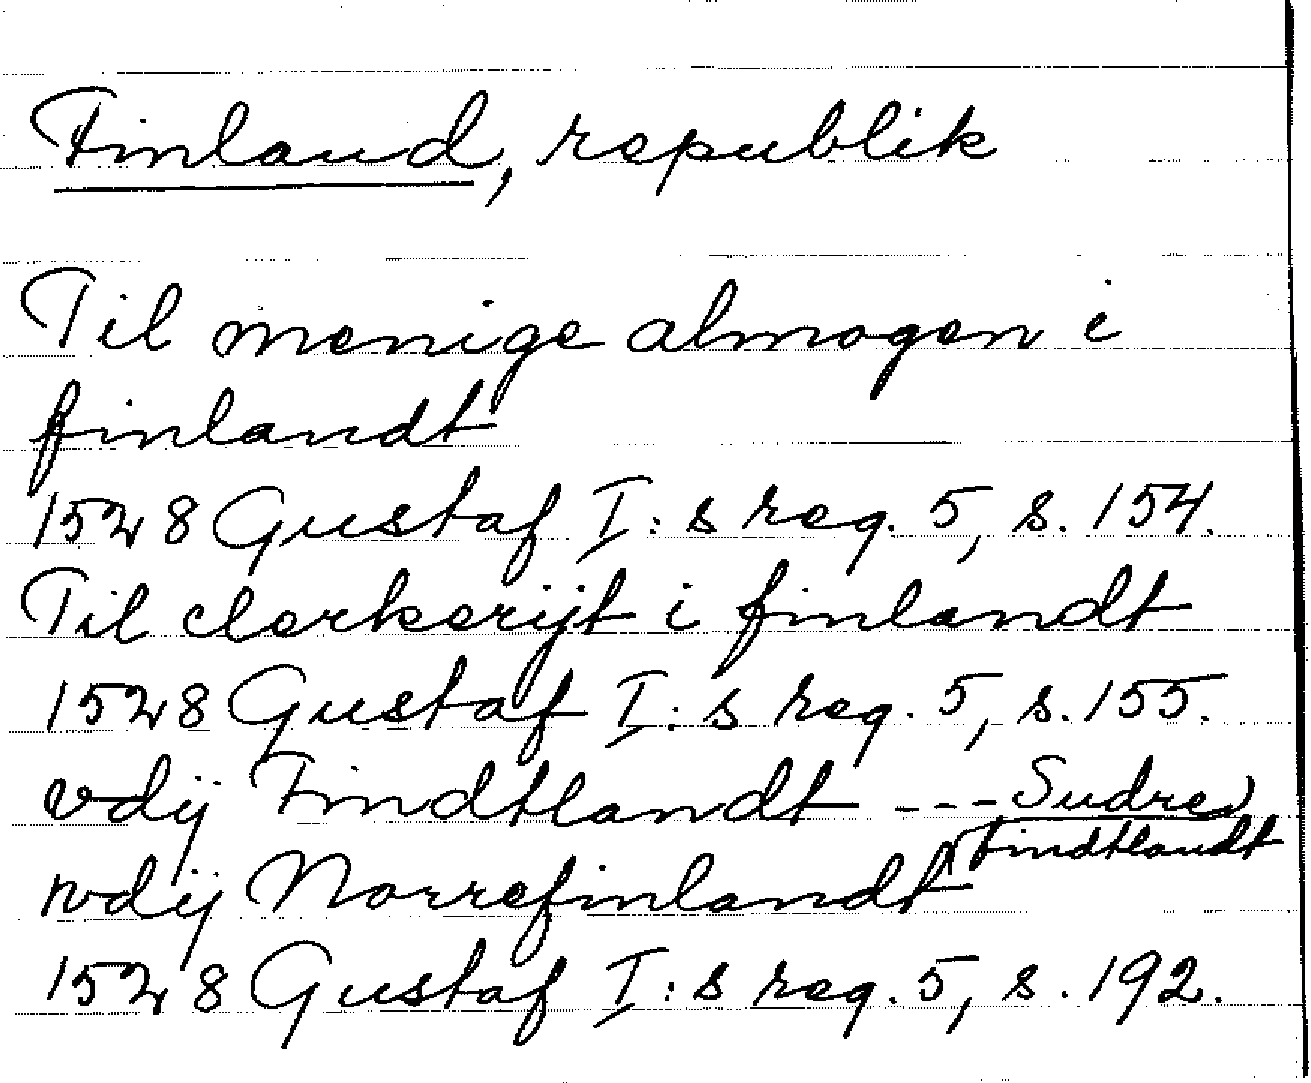 Finland, republik
Til menige almogen i
finlandt
1528 Gustaf I:s reg. 5, s. 154.
Til clerkerijt i finlandt
1528 Gustaf I:s reg. 5, s. 155.
vdij Findtlandt --- Sudre
findtlandt
wdij Norrefinlandt
1528 Gustaf I:s reg. 5, s. 192.